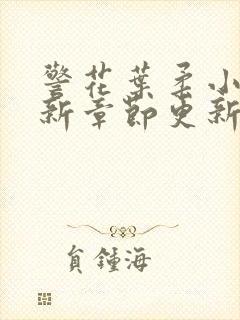 警花葉柔小
新章節更新
貟鍾海